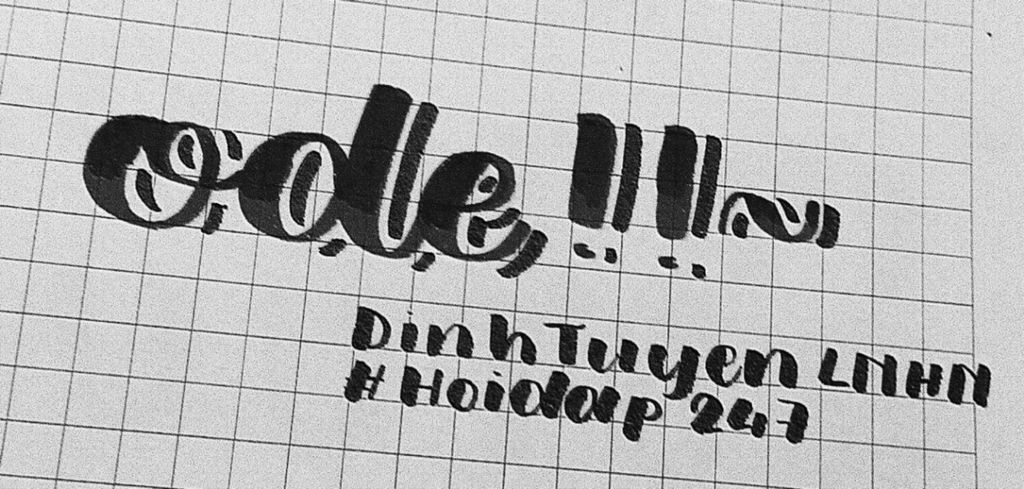 ode !!~
DinhTuyen LNHN
#Hoidap 247